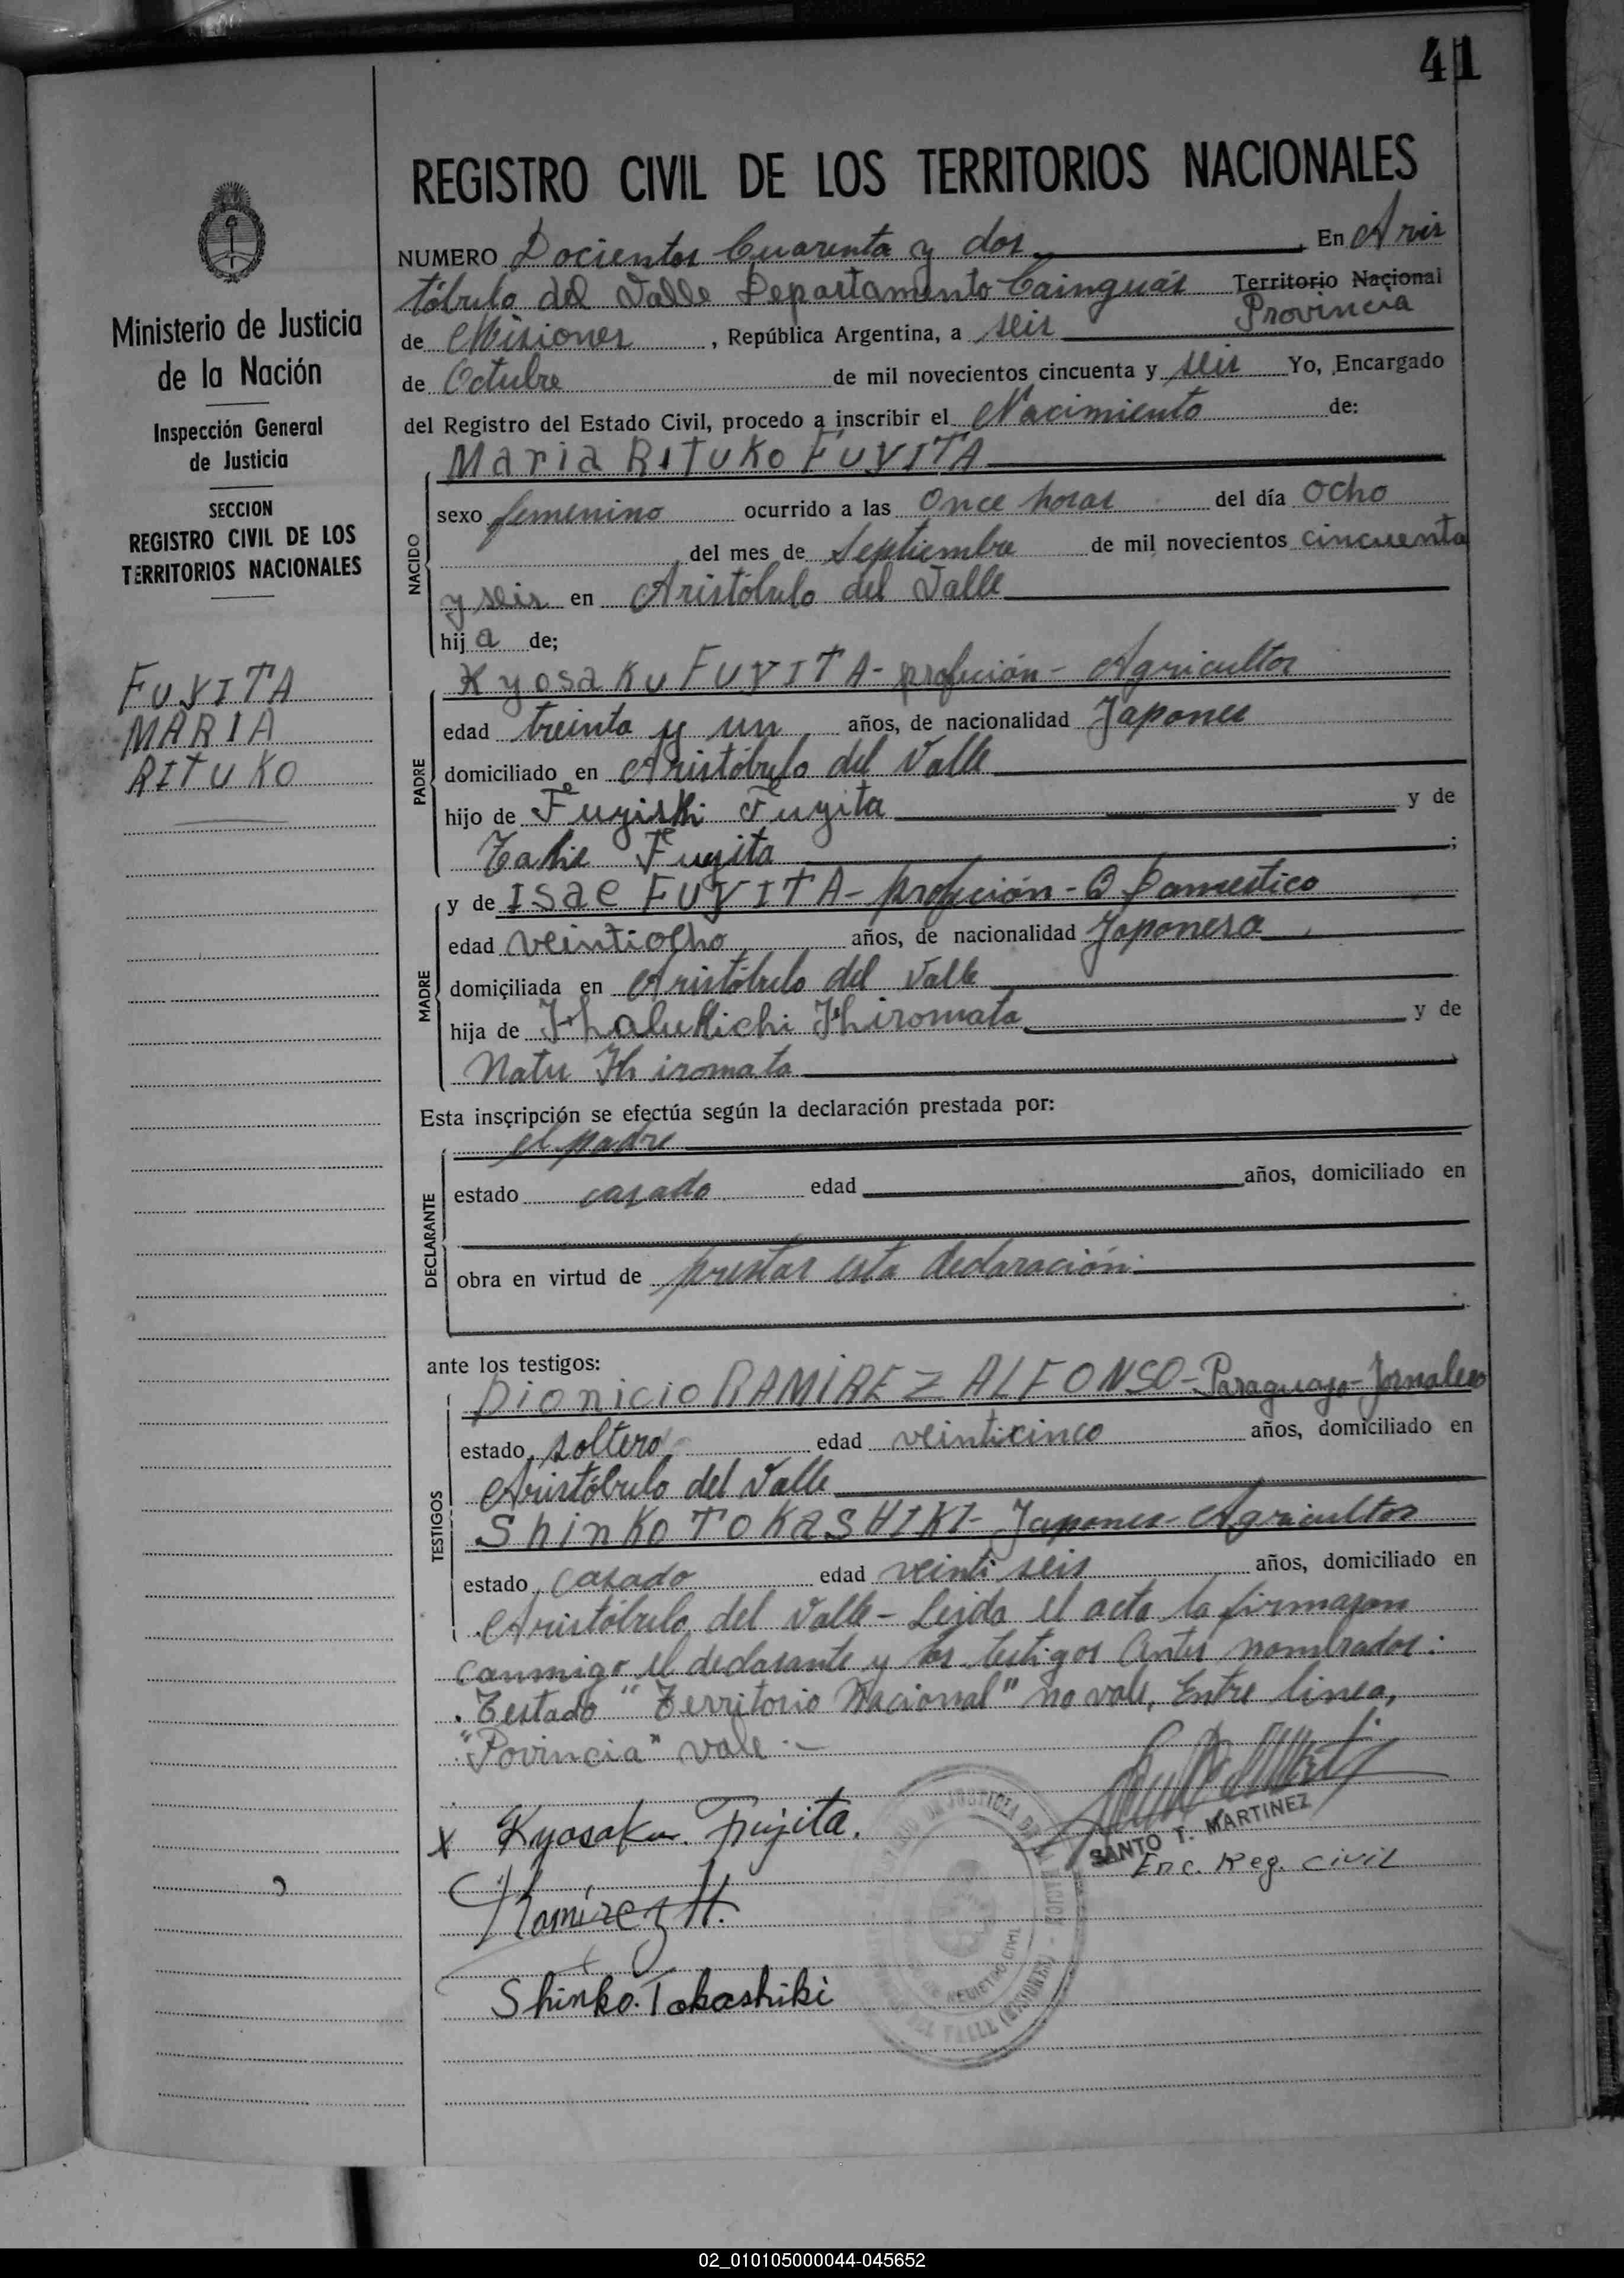 41
REGISTRO CIVIL DE LOS TERRITORIOS NACIONALES
NUMERO Docientos Cuarenta y dos En Aris
tóbulo del Valle Departamento Cainguás Territorio Nacional
Provincia
de Misiones, República Argentina, a seis
de Octubre de mil novecientos cincuenta y seis Yo, Encargado
del Registro del Estado Civil, procedo a inscribir el Nacimiento de:
Maria RITUKO FUYITA
NACIDO
sexo femenino ocurrido a las Once horas del día Ocho
del mes de Septiembre de mil novecientos cincuenta
y seis en Aristóbulo del Valle
hija de;
PADRE
Kyosaku FUYITA- profeción- Agricultor
edad treinta y un años, de nacionalidad Japones
domiciliado en Aristóbulo del Valle
hijo de Fuyiski Fuyita y de
Fuyita;
MADRE
y de Isae FUYITA- profeción- Q Domestico
edad veintiocho años, de nacionalidad Japonesa
domiciliada en Aristóbulo del Valle
hija de Hhalukichi Hhiromata y de
Natu Hhiromata
Esta inscripción se efectúa según la declaración prestada por:
DECLARANTE
el padre
estado casado edad años, domiciliado en
obra en virtud de prestar esta declaración.
ante los testigos:
TESTIGOS
Dionicio RAMIREZ ALFONSO- Paraguayo- Jornalero
estado soltero edad veinticinco años, domiciliado en
Aristóbulo del Valle
Shinko TOKASHIKI- Japones- Agricultor
estado casado edad veinti seis años, domiciliado en
Aristóbulo del Valle- Leida el acta la firmaron
conmigo el declarante y los testigos Antes nombrados:
Testado "Territorio Nacional" no vale, Entre linea,
"Povincia" vale.-
x Kyosaku. Fujita.
SANTO T. MARTINEZ
Enc. Reg. Civil
Ramírez A.
Shinko. Tokashiki
Ministerio de Justicia
de la Nación
Inspección General
de Justicia
SECCION
REGISTRO CIVIL DE LOS
TERRITORIOS NACIONALES
FUYITA
MARIA
RITUKO
02_010105000044-045652